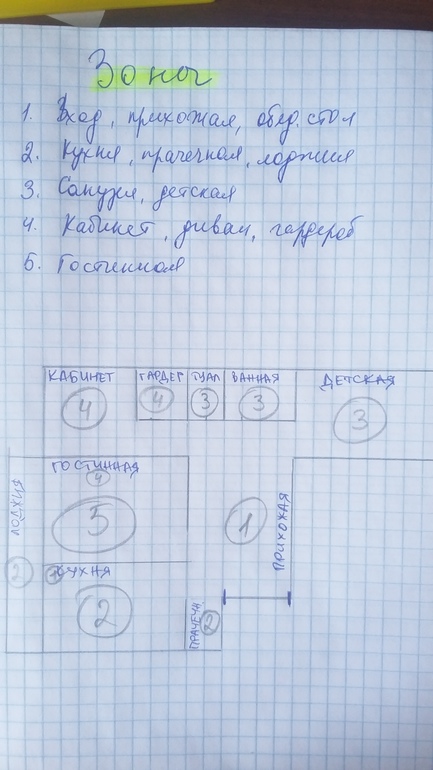 Зоны
1. Вход, прихожая, обед. стол
2. Кухня, прачечная, лоджия
3. Санузел, детская
4. Кабинет, диван, гардероб
5. Гостинная
КАБИНЕТ ГАРДЕР ТУАЛ ВАННАЯ ДЕТСКАЯ
4 4 3 3 3
ГОСТИННАЯ
4
5
ЛОДЖИЯ
2
1
ПРИХОЖАЯ
КУХНЯ
2
ПРАЧЕЧН
2